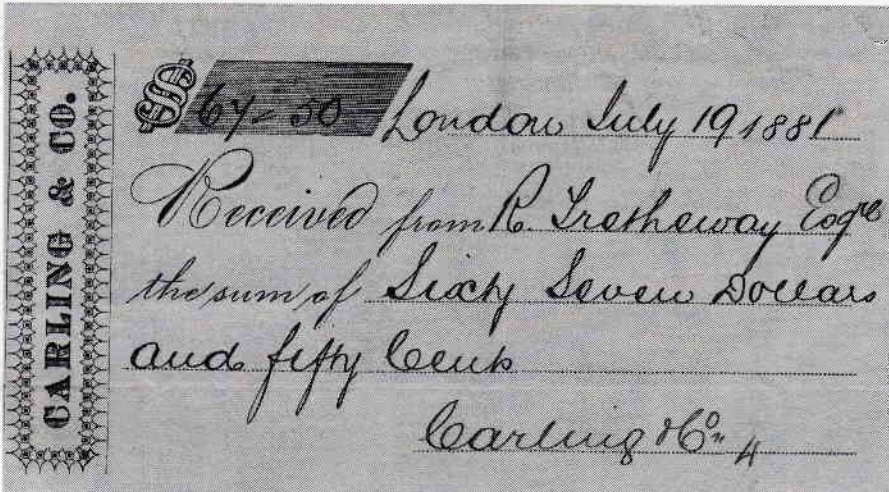 CARLING & CO.
$ 67-50 London July 19 1881
Received from R. Tretheway Esqre
the sum of Sixty Seven Dollars
and fifty Cents
Carling & Co.